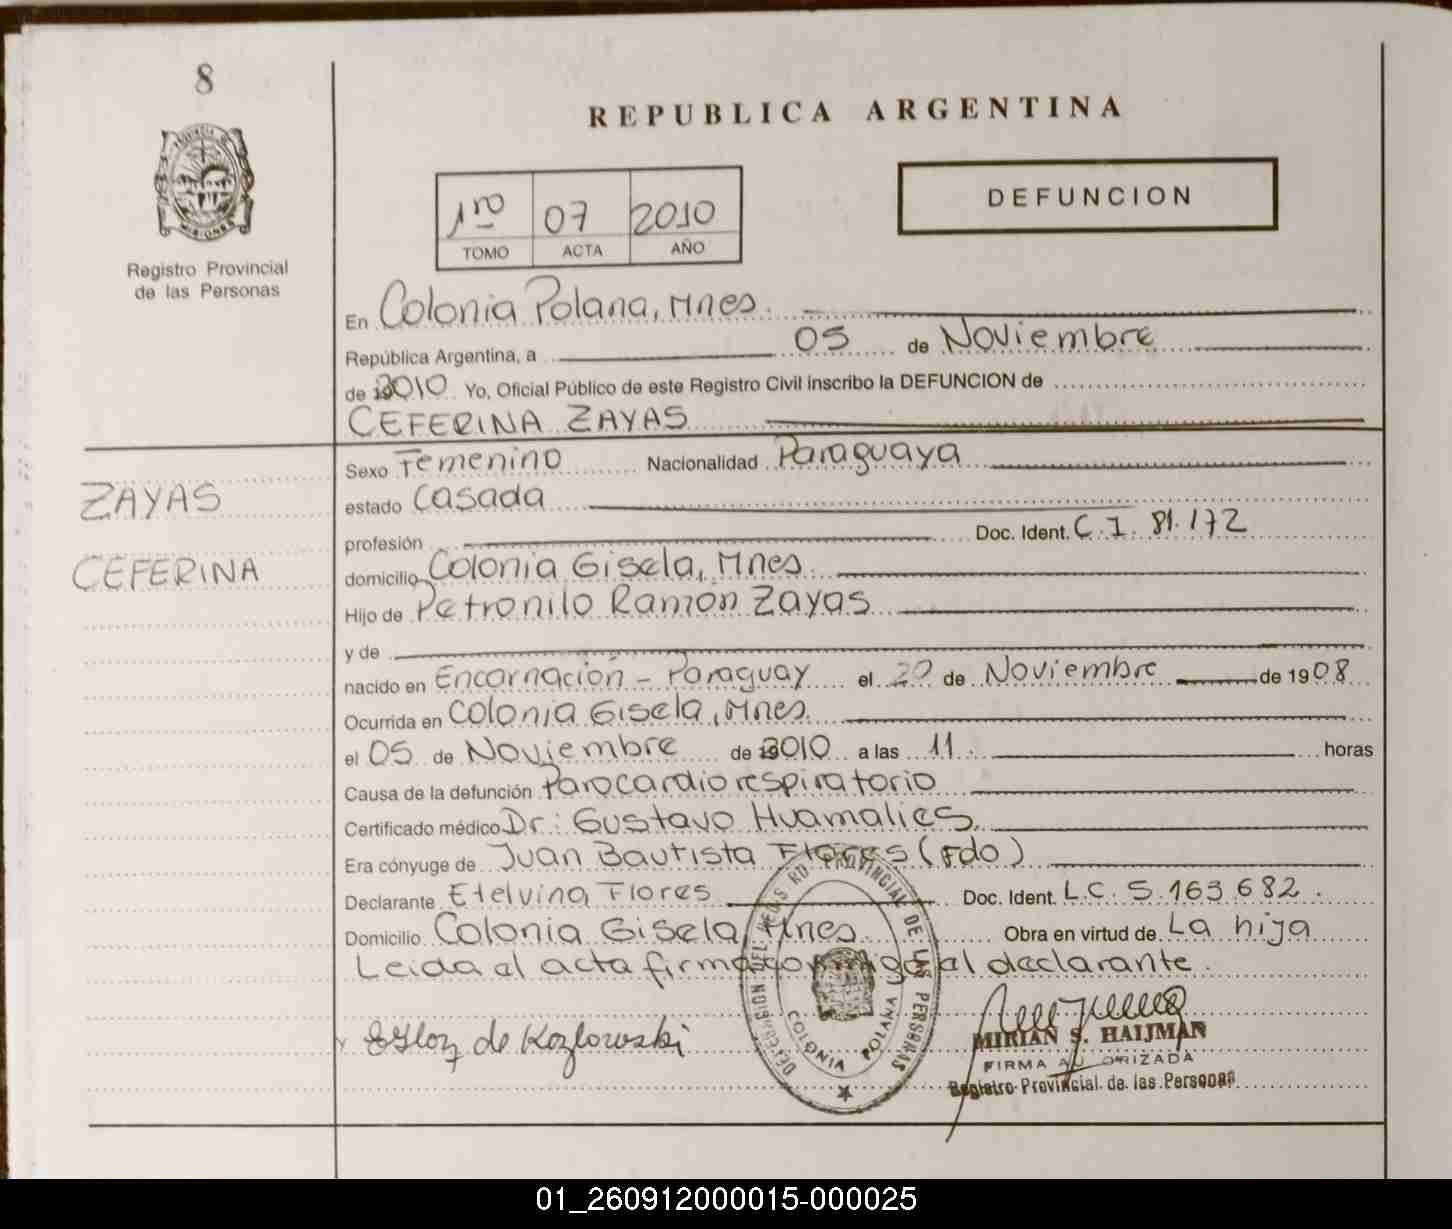 8
REPUBLICA ARGENTINA
PROVINCIA DE MISIONES
Registro Provincial
de las Personas
1ro 07 2010
TOMO ACTA AÑO
DEFUNCION
En Colonia Polana, Mnes.
República Argentina, a 05 de Noviembre
de 2010 Yo, Oficial Público de este Registro Civil inscribo la DEFUNCION de
CEFERINA ZAYAS
ZAYAS
CEFERINA
Sexo Femenino Nacionalidad Paraguaya
estado Casada
profesión Doc. Ident. C.I. 81.172
domicilio Colonia Gisela, Mnes.
Hijo de Petronilo Ramón Zayas
y de
nacido en Encarnación - Paraguay el de Noviembre de 1908
Ocurrida en Colonia Gisela, Mnes.
el 05 de Noviembre de 2010 a las 11. horas
Causa de la defunción Parocardiorespiratorio
Certificado médico Dr: Gustavo Huamalies.
Era cónyuge de Juan Bautista Flores (Fdo)
Declarante Etelvina Flores Doc. Ident. L.C. 5.163.682.
Domicilio Colonia Gisela, Mnes. Obra en virtud de La hija
Leida el acta firma conmigo el declarante.
de Kozlowski
REGISTRO PROVINCIAL DE LAS PERSONAS
COLONIA POLANA
MIRIAN S. HAIJMAN
FIRMA AUTORIZADA
Registro Provincial de las Personas
01_260912000015-000025